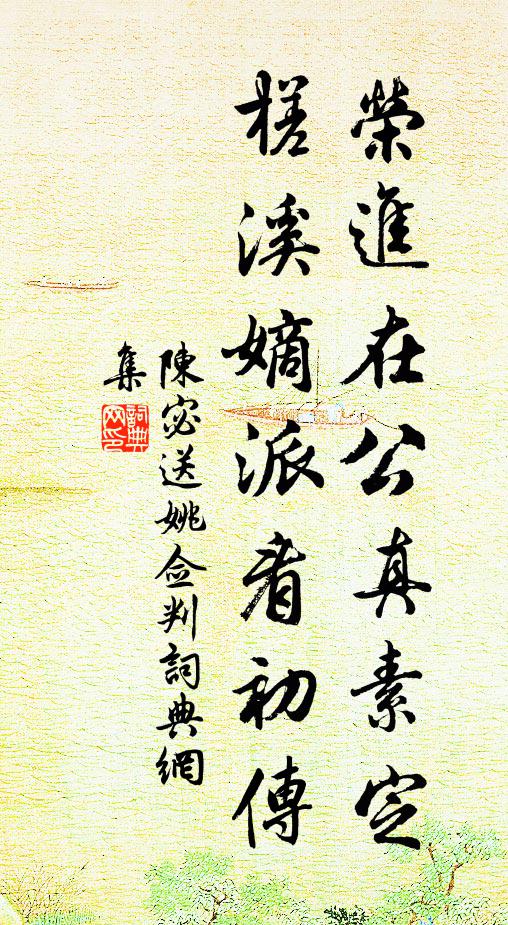 榮進在公真素定
槎溪嫡派看初傳
陳宓送姚僉判詞典網
集
詞典網印